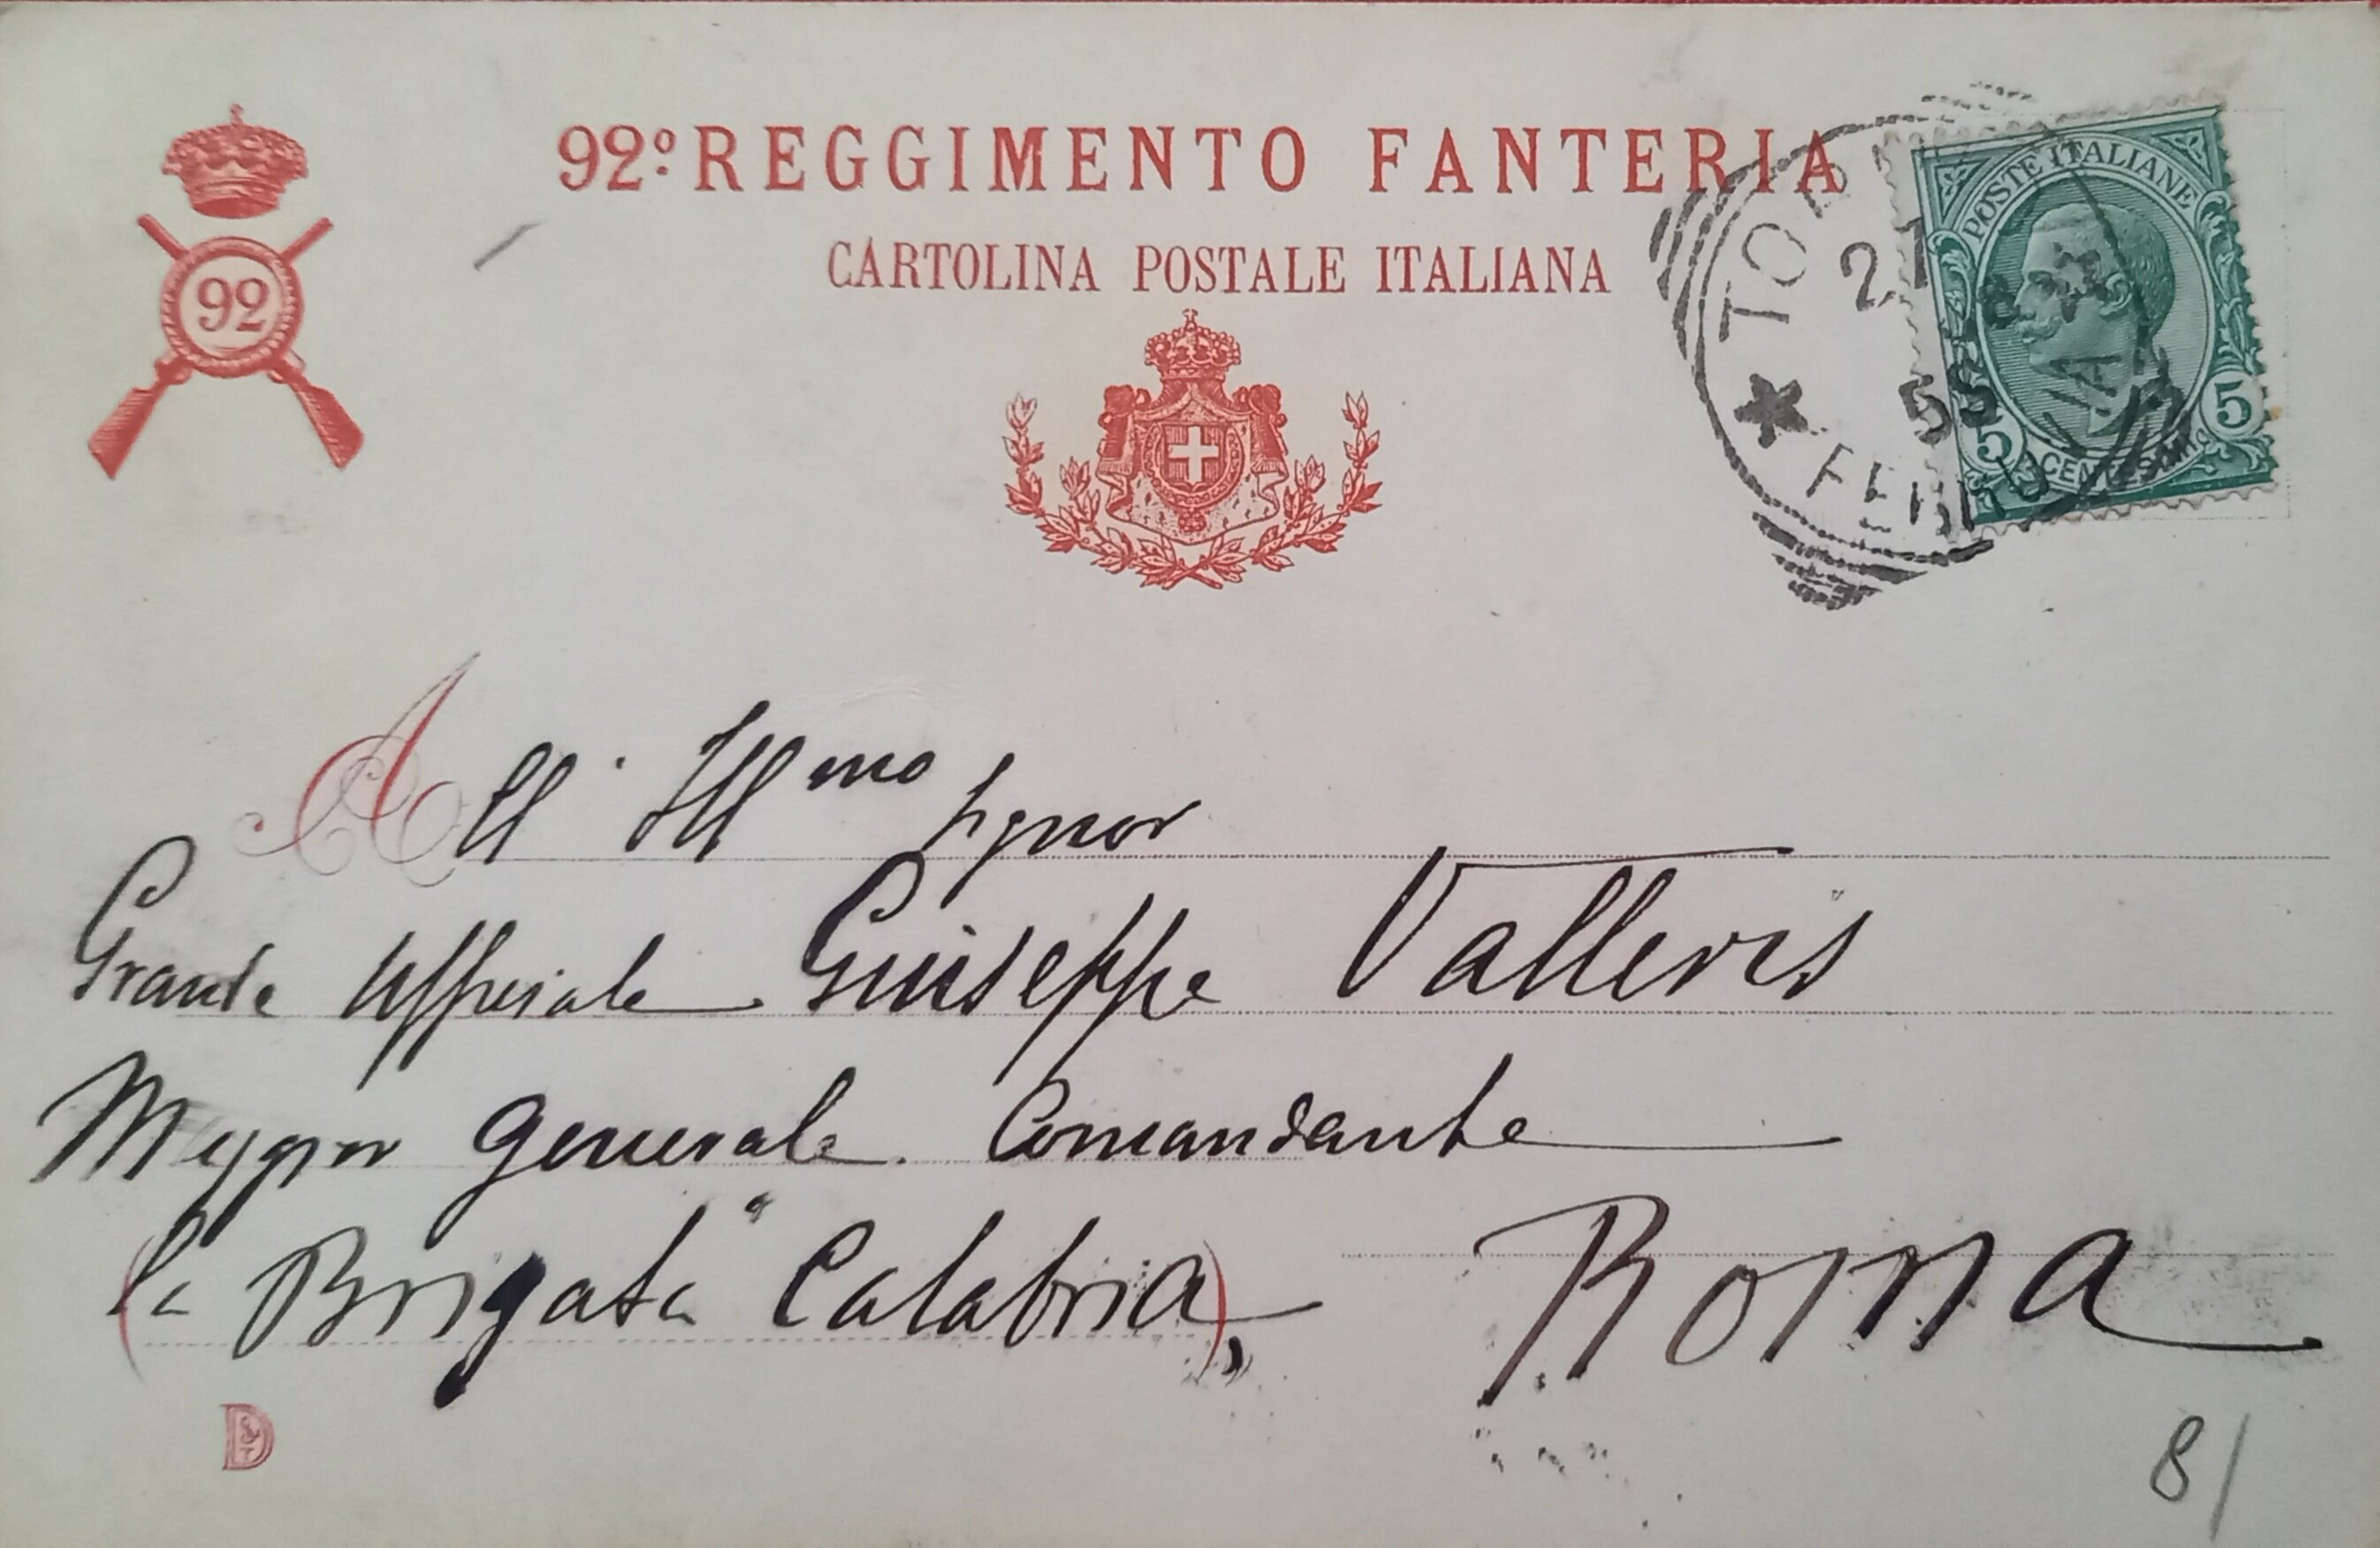 92
92º REGGIMENTO FANTERIA
CARTOLINA POSTALE ITALIANA
POSTE ITALIANE
5 5
TOR
21
5S
FERRO
All' Ill mo Signor
Grande Uffiziale Giuseppe Valleris
Maggior Generale Comandante
la Brigata "Calabria), Roma
D
8/